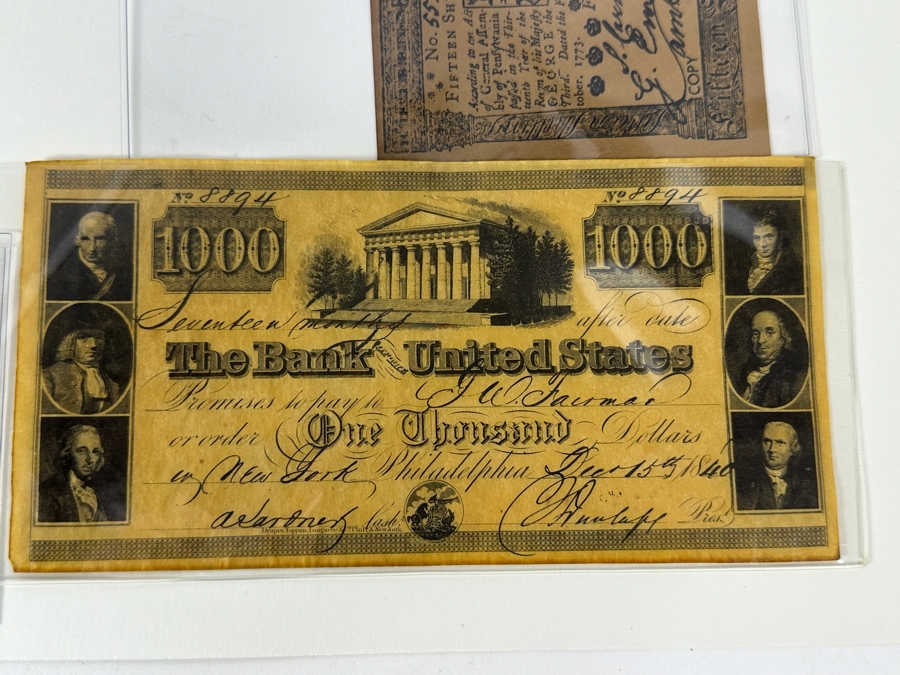 No. 55
FIFTEEN SH
According to an Act
of General Assem-
bly of Pennsylvania
passed in the Thir-
teenth Year of the
Reign of his Majesty
GEORGE the
Third. Dated the F
tober, 1773.
COPY
Fifteen
No 8894
No 8894
1000
1000
Seventeen months after date
The Bank OF THE United States
Promises to pay to
or order One Thousand Dollars
in New York Philadelphia Decr 15th 1840
Cashr
Prest